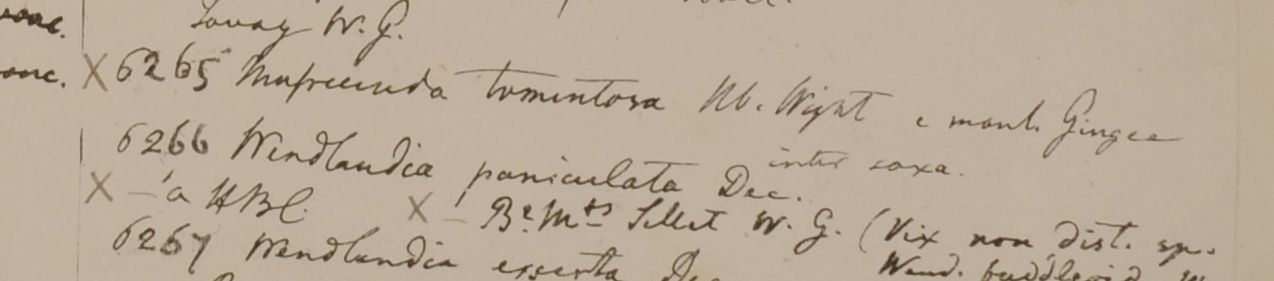 Tavoy W. G.
X 6265 Mussaenda tomentosa Hb. Wight e mont. Gingee
inter saxa.
6266 Wendlandia paniculata Dec.
X – a HBC. X – B? Mts Sillet W. G. (Vix non dist. sp.
6267 Wendlandia exserta Dec
Wend.